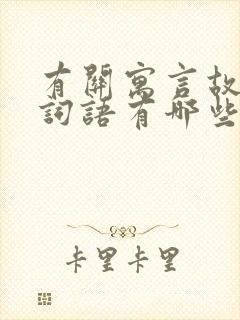 有關寓言故
詞語有哪些
卡里卡里